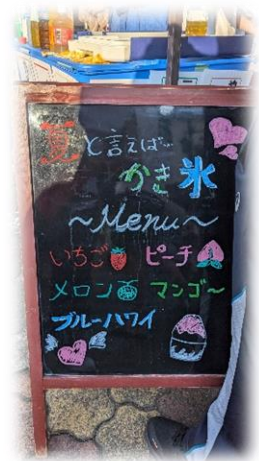 夏と言えば…
かき氷
～Menu～
いちご ピーチ
メロン マンゴ～
ブルーハワイ